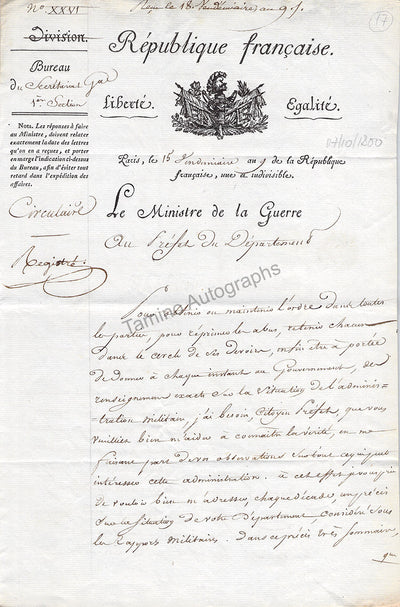 N.º XXVI
Reçu le 18 Vendémiaire an 9.
17
Division.
Bureau
du Secrétariat Gal
1ère Section
République française.
Liberté. Egalité.
NOTA. Les réponses à faire
au Ministre, doivent relater
exactement la date des lettres
qu'on en a reçues, et porter
en marge l'indication ci-dessus
du Bureau, afin d'éviter tout
retard dans l'expédition des
affaires.
Paris, le 15 Vendémiaire an 9 de la République
française, une et indivisible.
17/10/1800
Circulaire
Le Ministre de la Guerre
Au Préfet du Département
Registré
Tamino Autographs
Pour ou maintenir l'ordre dans toutes
les parties, pour réprimer les abus, retenir chacun
dans le cercle de ses devoirs, enfin être à portée
de donner à chaque instant au Gouvernement, des
renseignemens exacts sur la situation de l'adminis-
tration militaire, j'ai besoin, Citoyen Préfet, que vous
veuilliez bien m'aider à connaître la vérité, en me
faisant part de vos observations sur tout ce qui peut
intéresser cette administration. à cet effet je vous prie
de vouloir bien m'adresser, chaque décade, un précis
sur la situation de votre département, considéré sous
les rapports militaires. Dans ce précis très sommaire,
que